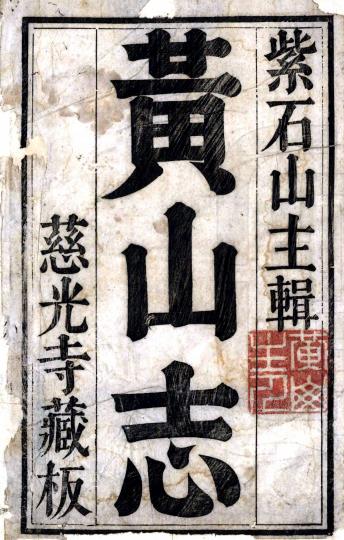 紫石山主輯
黃山志
慈光寺藏板